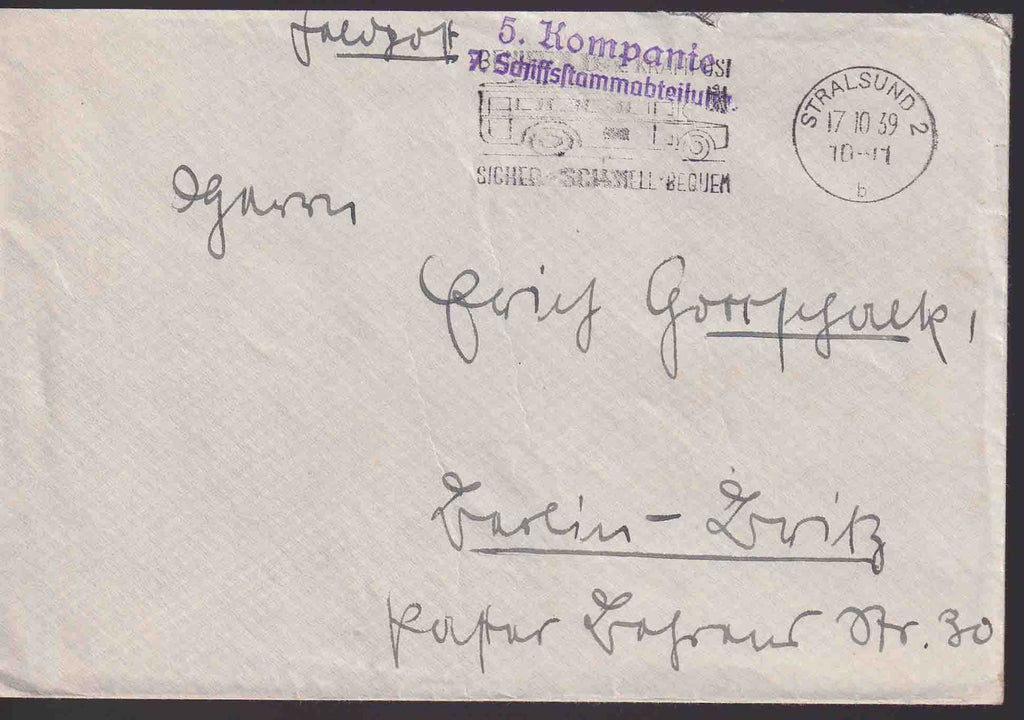 Feldpost
5. Kompanie
7. Schiffsstammabteilung.
SICHER · SCHNELL · BEQUEM
STRALSUND 2
17 10 39
10-11
b
Herrn
Erich Gottschalk,
Berlin-Britz
Paster Behrens Str. 30